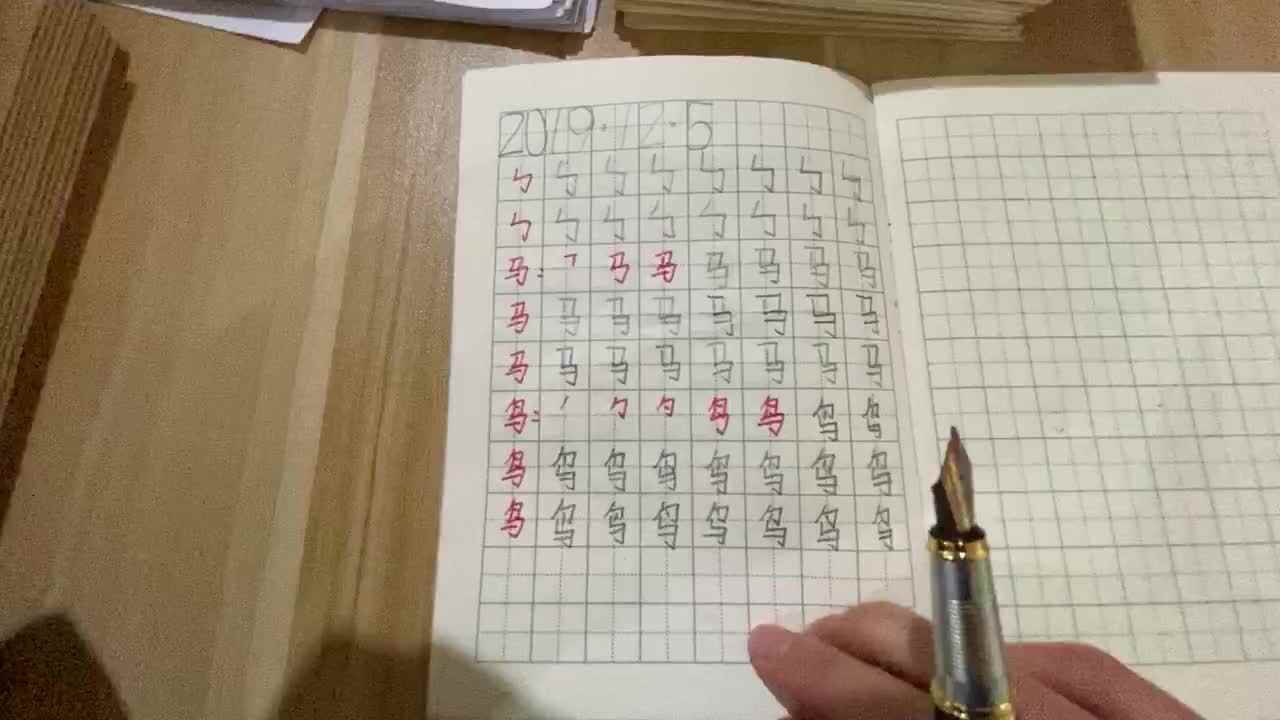 2019.12.5
㇉ ㇉ ㇉ ㇉ ㇉ ㇉ ㇉ ㇉
㇉ ㇉ ㇉ ㇉ ㇉ ㇉ ㇉ ㇉
马: ㇕ 马 马 马 马 马 马
马 马 马 马 马 马 马 马
马 马 马 马 马 马 马 马
鸟: 丿 勹 勹 鸟 鸟 鸟 鸟
鸟 鸟 鸟 鸟 鸟 鸟 鸟 鸟
鸟 鸟 鸟 鸟 鸟 鸟 鸟 鸟